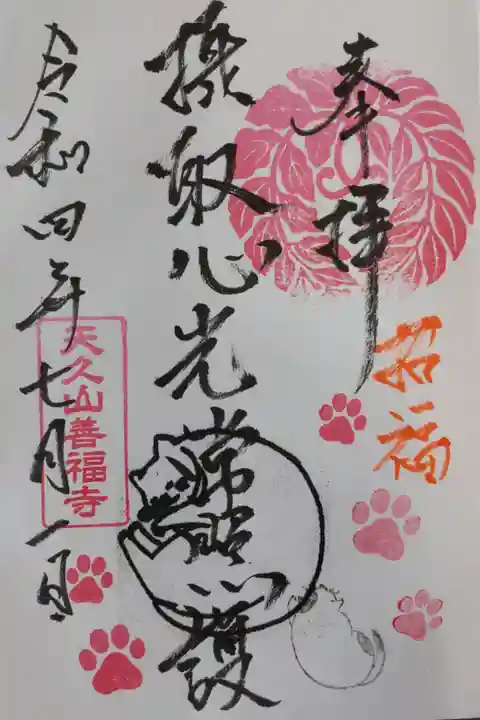 奉拝
招福
摂取心光常照護
天久山善福寺
令和四年七月一日